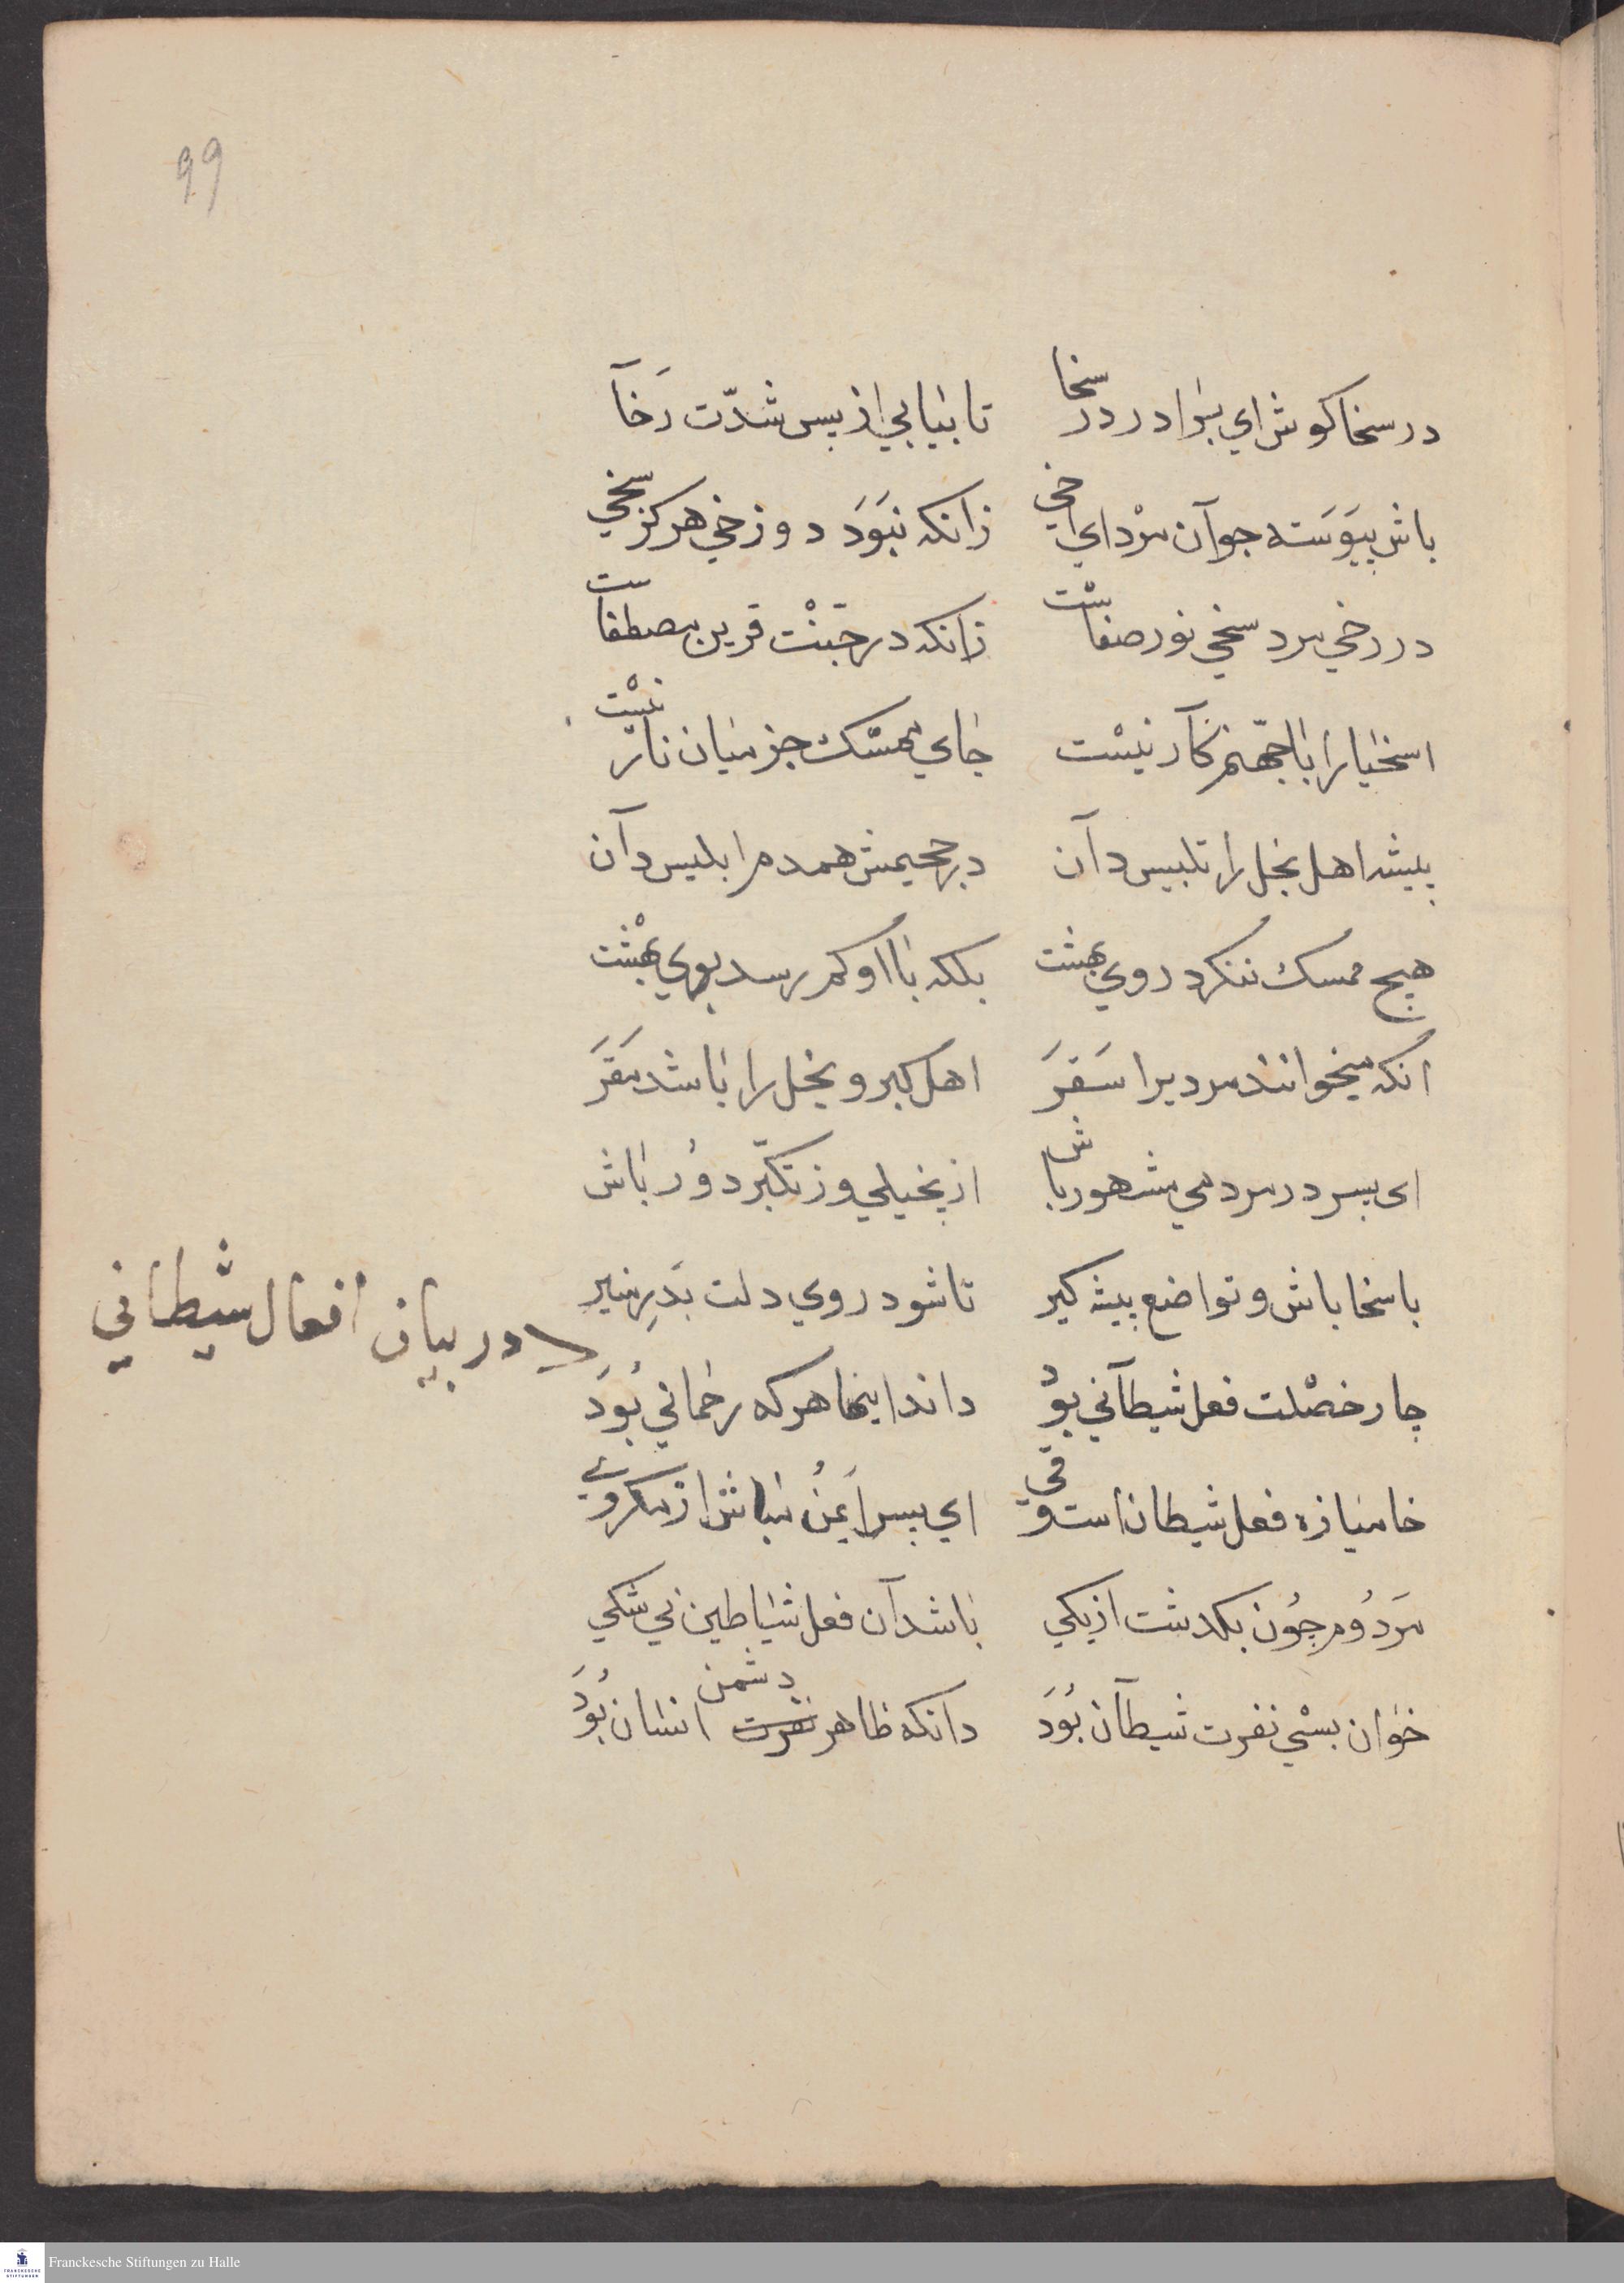 99
در سخا كوش اي برادر در سخا تا بيابي از پس شدّت رَخآ
باش پيوَسَته جوآن مرْد اي اخي زانكه نبَوَد دوزخي هركز سخي
در رخي مرد سخي نور صفاسْت زانكه در جَنّتْ قرين مصطفاست
اسخيا را با جهّنم كآر نيسْت جاي ممسْك جز ميان نار نيْست
پيشه اهل بخل را تلبيس دآن در جحيمش همدم ابليس دآن
هيچ ممسك ننكرد روي بهشت بلكه با او كم رسد بوي بهشْت
انكه ميخوانند مرد يرا سَقَرَ اهل كبر و بخل را باشد مَقَرَ
اى پسر در مردمي مشهور باش از بخيلي و ز تكبّر دوُر باش
با سخا باش و تواضع پيشه كير تا شود روي دلت بَدَرِ منير
در بيان افعال شيطاني
چار خصْلت فعل شيطآني بوْد داند اينها هركه رحماني بُوَدَ
خاميازه فعل شيطان است و قي اي پسر اَيمَنُ مباش از مكر وي
مَردُوم چوُن بكدشت از يكي باشد آن فعل شياطين بي شكي
خوان بسْي نفرت شيطآن بُوَدَ دانكه ظاهر نفرت دشمن انسان بُوَدُ
Franckesche Stiftungen zu Halle